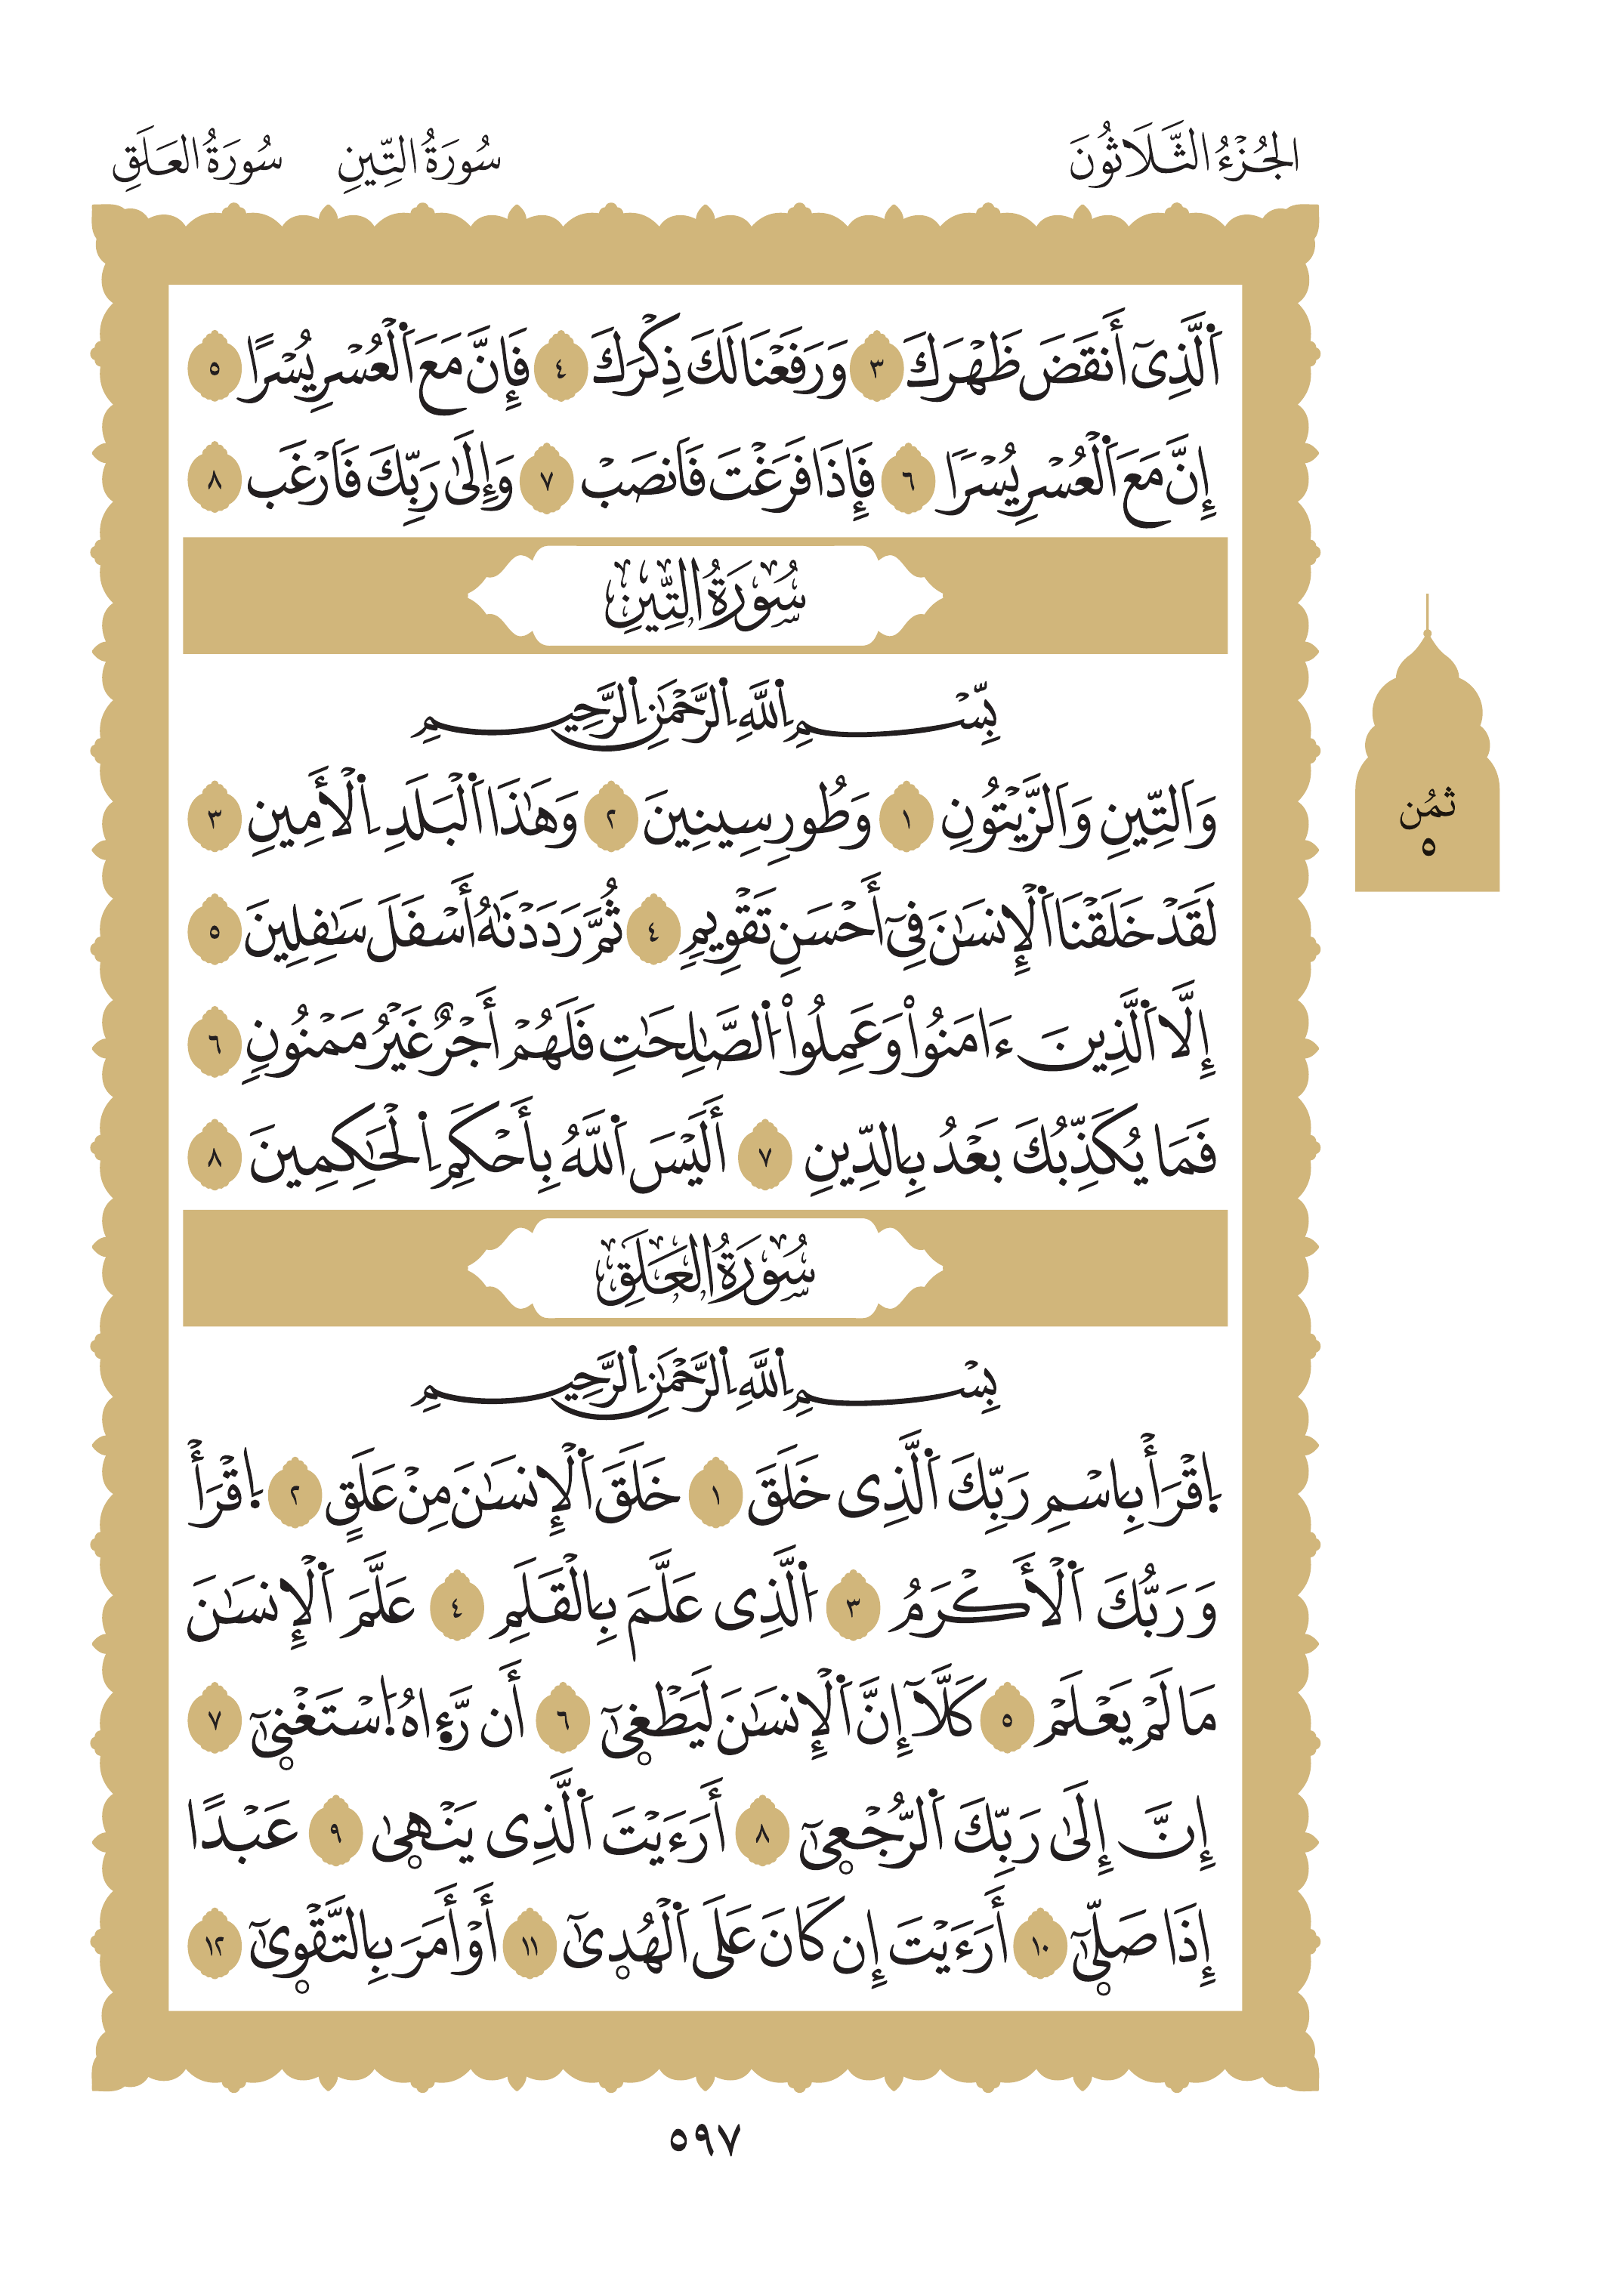 الجُزْءُ الثَّلَاثُونَ سُورَةُ التِّينِ سُورَةُ العَلَقِ
اَ۬لَّذِىٓ أَنقَضَ ظَهْرَكَ ٣ وَرَفَعْنَا لَكَ ذِكْرَكَ ٤ فَإِنَّ مَعَ اَ۬لْعُسْرِ يُسْرًا ٥
إِنَّ مَعَ اَ۬لْعُسْرِ يُسْرًا ٦ فَإِذَا فَرَغْتَ فَانصَبْ ٧ وَإِلَىٰ رَبِّكَ فَارْغَب ٨
سُورَةُ التِّينِ
بِّسْمِ اِ۬للَّهِ اِ۬لرَّحْمَٰنِ اِ۬لرَّحِيمِ
وَالتِّينِ وَالزَّيْتُونِ ١ وَطُورِ سِينِينَ ٢ وَهَٰذَا اَ۬لْبَلَدِ اِ۬لْأَمِينِ ٣
ثُمُن
٥
لَقَدْ خَلَقْنَا اَ۬لْإِنسَٰنَ فِىٓ أَحْسَنِ تَقْوِيمٍ ٤ ثُمَّ رَدَدْنَٰهُ أَسْفَلَ سَٰفِلِينَ ٥
إِلَّا اَ۬لَّذِينَ ءَامَنُوا۟ وَعَمِلُوا۟ اُ۬لصَّٰلِحَٰتِ فَلَهُمْ أَجْرٌ غَيْرُ مَمْنُونٍ ٦
فَمَا يُكَذِّبُكَ بَعْدُ بِالدِّينِ ٧ أَلَيْسَ اَ۬للَّهُ بِأَحْكَمِ اِ۬لْحَٰكِمِينَ ٨
سُورَةُ العَلَقِ
بِسْمِ اِ۬للَّهِ اِ۬لرَّحْمَٰنِ اِ۬لرَّحِيمِ
اِ۪قْرَأْ بِاسْمِ رَبِّكَ اَ۬لَّذِى خَلَقَ ١ خَلَقَ اَ۬لْإِنسَٰنَ مِنْ عَلَقٍ ٢ اِ۪قْرَأْ
وَرَبُّكَ اَ۬لْأَكْرَمُ ٣ اُ۬لَّذِى عَلَّمَ بِالْقَلَمِ ٤ عَلَّمَ اَ۬لْإِنسَٰنَ
مَا لَمْ يَعْلَمْ ٥ كَلَّآ إِنَّ اَ۬لْإِنسَٰنَ لَيَطْغ۪ىٰٓ ٦ أَن رَّء۪اهُ اُ۪سْتَغْن۪ىٰٓ ٧
إِنَّ إِلَىٰ رَبِّكَ اَ۬لرُّجْع۪ىٰٓ ٨ أَرَءَيْتَ اَ۬لَّذِى يَنْه۪ىٰ ٩ عَبْدًا
إِذَا صَلّ۪ىٰٓ ١٠ أَرَءَيْتَ إِن كَانَ عَلَى اَ۬لْهُد۪ىٰٓ ١١ أَوْ أَمَرَ بِالتَّقْو۪ىٰٓ ١٢
٥٩٧